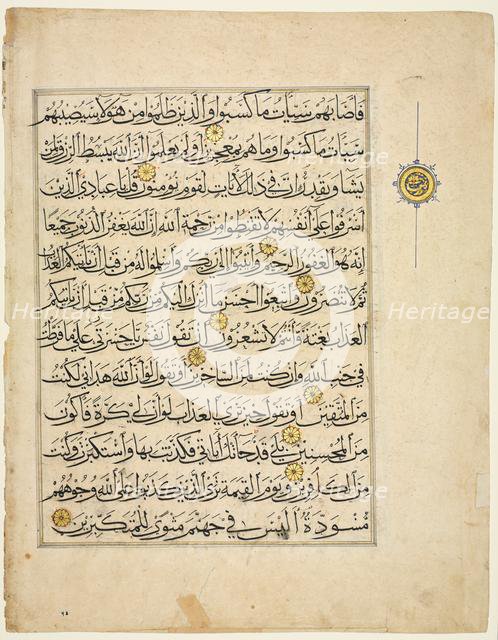 فأصابهم سيئات ما كسبوا والذين ظلموا من هؤلاء سيصيبهم
سيئات ما كسبوا وما هم بمعجزين أولم يعلموا أن الله يبسط الرزق لمن
يشاء ويقدر إن في ذلك لآيات لقوم يؤمنون قل يا عبادي الذين
أسرفوا على أنفسهم لا تقنطوا من رحمة الله إن الله يغفر الذنوب جميعا
إنه هو الغفور الرحيم وأنيبوا إلى ربكم وأسلموا له من قبل أن يأتيكم العذاب
ثم لا تنصرون واتبعوا أحسن ما أنزل إليكم من ربكم من قبل أن يأتيكم
العذاب بغتة وأنتم لا تشعرون أن تقول نفس يا حسرتى على ما فرطت
في جنب الله وإن كنت لمن الساخرين أو تقول لو أن الله هداني لكنت
من المتقين أو تقول حين ترى العذاب لو أن لي كرة فأكون
من المحسنين بلى قد جاءتك آياتي فكذبت بها واستكبرت وكنت
من الكافرين ويوم القيمة ترى الذين كذبوا على الله وجوههم
مسودة أليس في جهنم مثوى للمتكبرين
Heritage
Heritage
Heritage
Heritage
Heritage